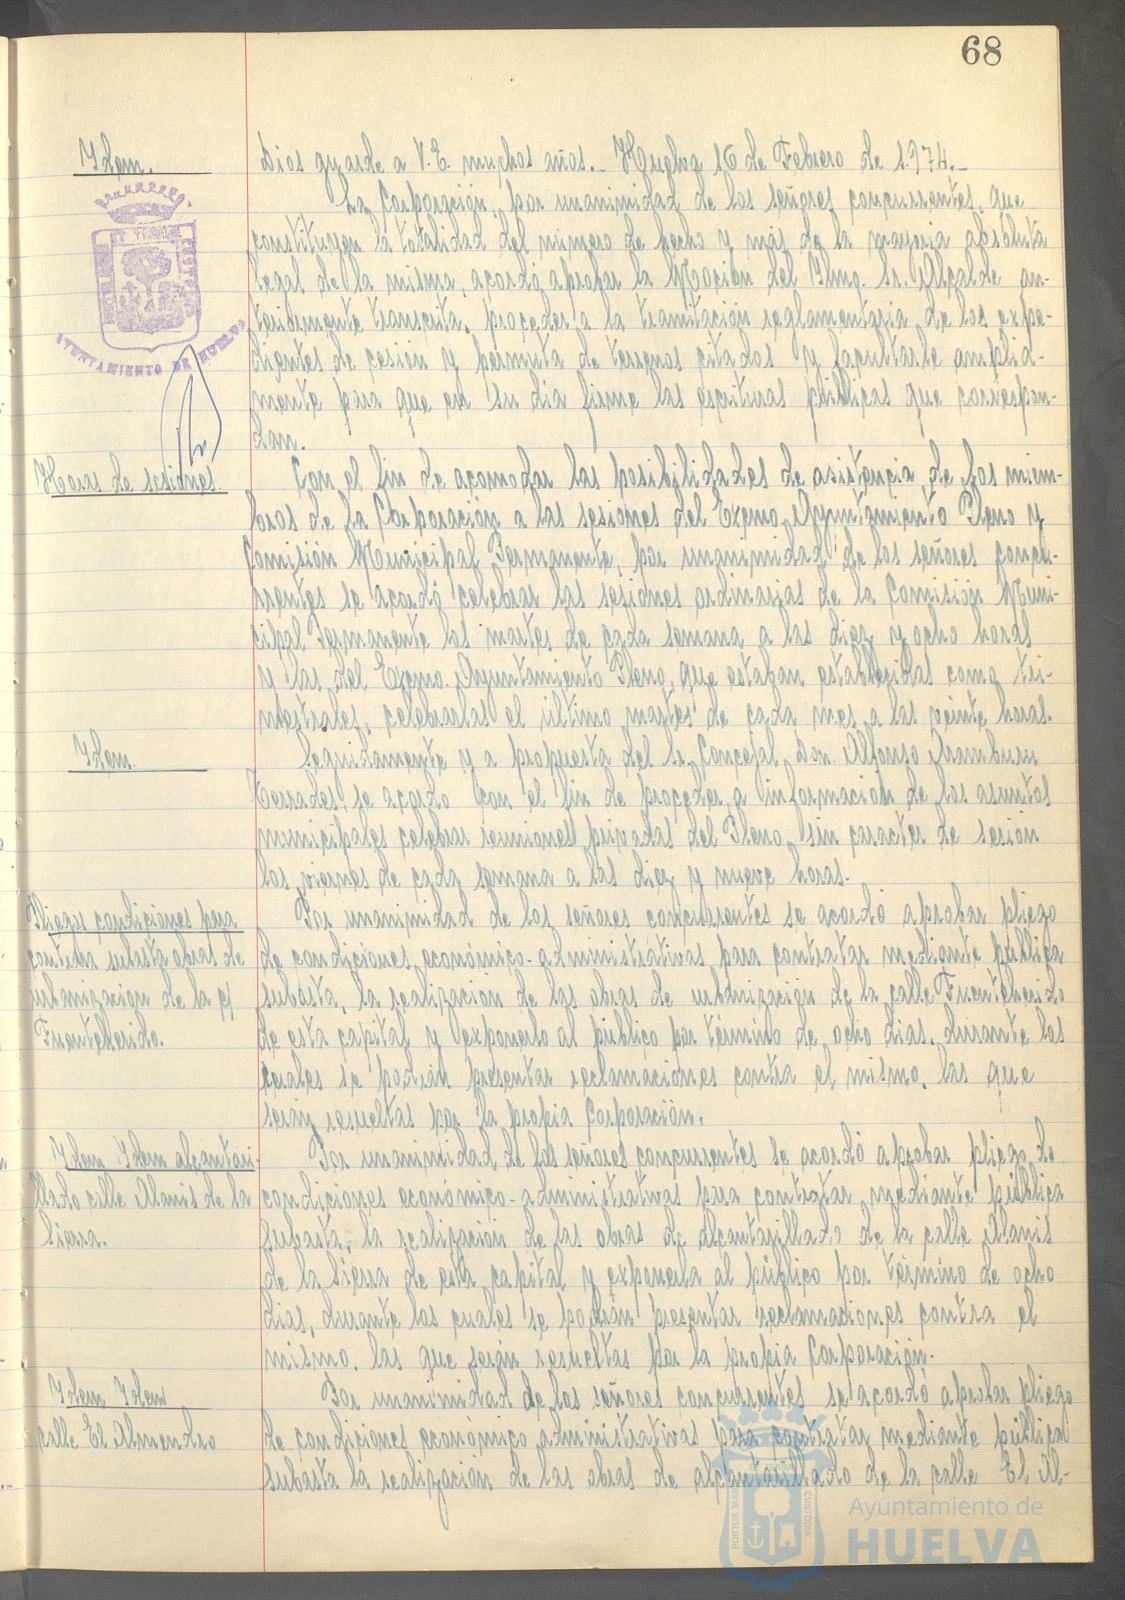 68
Idem.
Dios guarde a V.E. muchos años.- Huelva 16 de Febrero de 1.974.-
La Corporación, por unanimidad de los señores concurrentes, que
constituyen la totalidad del número de hecho y más de la mayoría absoluta
legal de la misma, acordó aprobar la Moción del Iltmo. Sr. Alcalde an-
teriormente transcrita, proceder a la tramitación reglamentaria de los expe-
dientes de cesión y permuta de terrenos citados y facultarle amplia-
mente para que en su día firme las escrituras públicas que correspon-
dan.
AYUNTAMIENTO DE HUELVA
Horas de sesiones.
Con el fin de acomodar las posibilidades de asistencia de los miem-
bros de la Corporación a las sesiones del Excmo. Ayuntamiento Pleno y
Comisión Municipal Permanente, por unanimidad de los señores concu-
rrentes se acordó celebrar las sesiones ordinarias de la Comisión Muni-
cipal Permanente los martes de cada semana a las diez y ocho horas
y las del Excmo. Ayuntamiento Pleno, que estaban establecidas como tri-
mestrales, celebrarlas el último martes de cada mes a las veinte horas.
Idem.
Seguidamente y a propuesta del Sr. Concejal Don Alfonso Aramburu
Terrades, se acordó con el fin de proceder a información de los asuntos
municipales celebrar reuniones privadas del Pleno sin caracter de sesión
los viernes de cada semana a las diez y nueve horas.
Pliego condiciones para
contratar subasta obras de
urbanización de la c/
Fuenteherido.
Por unanimidad de los señores concurrentes se acordó aprobar pliego
de condiciones económico-administrativas para contratar mediante pública
subasta, la realización de las obras de urbanización de la calle Fuenteherido
de esta capital y exponerlo al público por término de ocho días, durante los
cuales se podrán presentar reclamaciones contra el mismo, las que
serán resueltas por la propia Corporación.
Idem Idem alcantari-
llado calle Alanis de la
Sierra.
Por unanimidad de los señores concurrentes se acordó aprobar pliego de
condiciones económico-administrativas para contratar mediante pública
subasta, la realización de las obras de alcantarillado de la calle Alanis
de la Sierra de esta capital y exponerla al público por término de ocho
días, durante los cuales se podrán presentar reclamaciones contra el
mismo, las que serán resueltas por la propia Corporación.
Idem Idem
calle El Almendro
Por unanimidad de los señores concurrentes se acordó aprobar pliego
de condiciones económico administrativas para contratar mediante pública
subasta la realización de las obras de alcantarillado de la calle El Al-
PORTUS MARIS
CUSTODIA
Ayuntamiento de
HUELVA